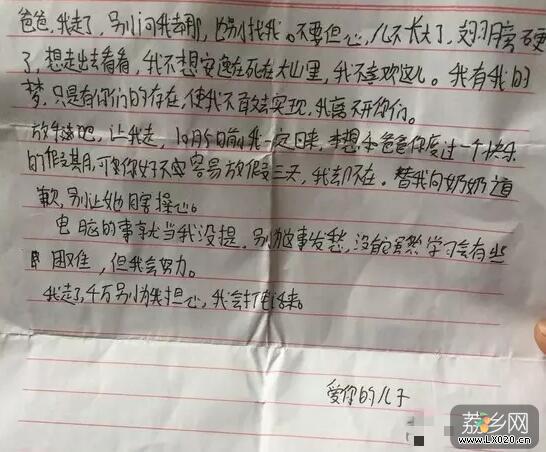 爸爸，我走了，别问我去那，也别找我。不要但心，儿不长大了，翅膀硬
了，想走出去看看，我不想安逸在死在大山里，我不喜欢这儿。我有我的
梦，只是有你们的存在，使我不敢去实现，我离不开你们。
放手吧，让我走，10月5日前我一定回来，本想和爸爸你度过一个快乐
的假其月，可是你好不容易放假三天，我却不在。替我向奶奶道
歉，别让她瞎操心。
电脑的事就当我没提，别为这事发愁，没有它虽然学习会有些
困难，但我会努力。
我走了，千万别为我担心，我会打电话来。
爱你的儿子
荔乡网
www.LX020.cn